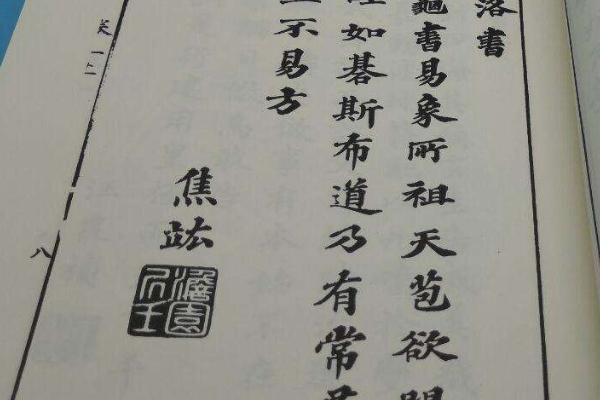 洛書
龜書易象所祖天苞欲
如碁斯布道乃有常
不易方
焦竑
澹園居士
八